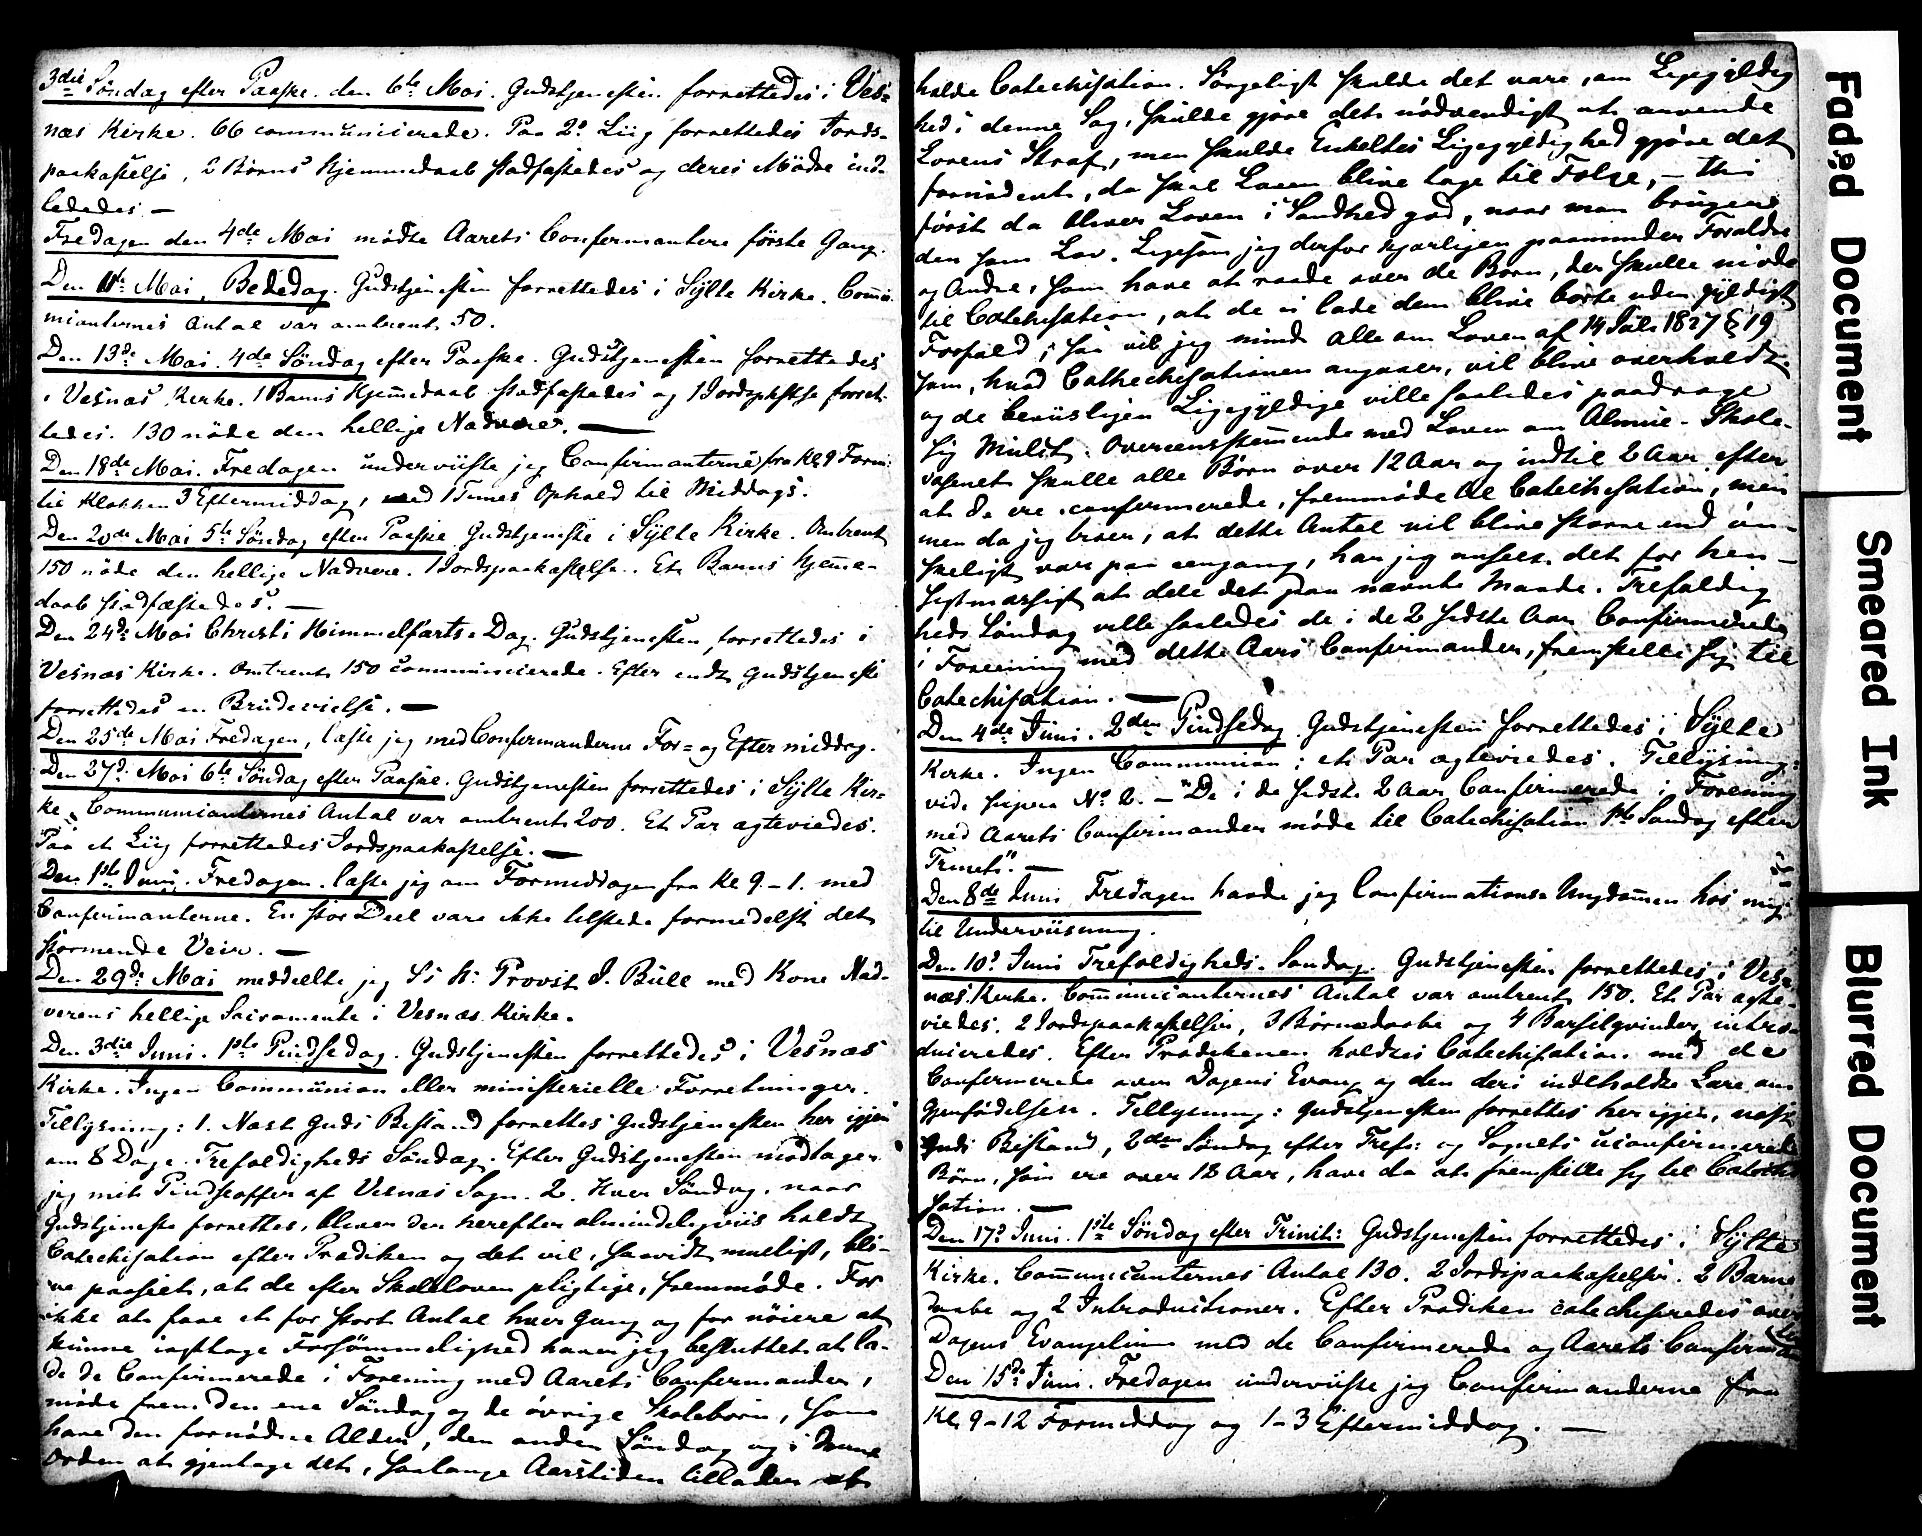 3die Søndag efter Paaske. den 6te Mai. Gudstjenesten forrettedes i Ves-
næs Kirke. 66 communicerede. Paa 2de Liig forrettedes Jords-
paakastelse, 2 Børns Hjemmedaab stadfæstedes og deres Mødre ind-
lededes —
Fredagen den 4de Mai mødte Aarets Confirmantere første Gang.
Den 11te Mai, Bededag. Gudstjenesten forrettedes i Sylte Kirke. Commu-
nicanternes Antal var omtrent 50.
Den 13de Mai. 4de Søndag efter Paaske. Gudstjenesten forrettedes
i Vesnæs Kirke. 1 Barns Hjemmedaab stadfæstedes og 1 Jordspkstse forret-
tedes. 130 nøde den hellige Nadvere. —
Den 18de Mai. Fredagen underviiste jeg Confirmanterne fra Kl 9 Form:
til Klokken 3 Eftermiddag, med 1 Times Ophold til Middags.
Den 20de Mai 5te Søndag efter Paaske Gudstjeneste i Sylte Kirke. Omtrent
150 nøde den hellige Nadvere. 1 Jordspaakastelse. Et Barns Hjemme-
daab stadfæstedes. —
Den 24de Mai Christi Himmelfarts-Dag. Gudstjenesten forrettedes i
Vesnæs Kirke. Omtrent 150 communicerede. Efter endt Gudstjeneste
forrettedes en Brudevielse. —
Den 25de Mai Fredagen, læste jeg med Confirmanderne For- og Eftermiddag.
Den 27de Mai 6te Søndag efter Paaske. Gudstjenesten forrettedes i Sylte Kir-
ke. Communicanternes Antal var omtrent 200. Et Par ægteviedes.
Paa et Liig forrettedes Jordspaakastelse. —
Den 1ste Juni. Fredagen. læste jeg om Formiddagen fra Kl 9 – 1. med
Confirmanterne. En stor Deel vare ikke tilstede formedelst det
stormende Veir. —
Den 29de Mai meddeelte jeg Provst J. Bull med Kone Nad-
verens hellige Sacramente i Vesnæs Kirke.
Den 3die Juni. 1ste Pindsedag. Gudstjenesten forrettedes i Vesnæs
Kirke. Ingen Communion eller ministerielle Forretninger.
Tillysning: 1. Næst Guds Bistand forrettes Gudstjenesten her igjen
om 8 Dage. Trefoldigheds Søndag. Efter Gudstjenesten modtager
jeg mit Pindsoffer af Vesnæs Sogn. 2. Hver Søndag, naar
Gudstjeneste forrettes, bliver der herefter almindeligviis holdt
Catechisation efter Prædiken og det vil, saavidt mueligt, bli-
ve paaseet, at de efter Skoleloven pligtige, fremmøde. For
ikke at faae et for stort Antal hver Gang og for nøiere at
kunne iagttage Forsømmelighed haver jeg besluttet at la-
de de Confirmerede i Forening med Aarets Confirmander,
møde frem den ene Søndag og de øvrige Skolebørn, som
have den fornødne Alder, den anden Søndag og i denne
Orden at gjentage det, saalænge Aarstiden tillader at
holde Catechisation. Sørgeligt skulde det være, om Ligegyldig
hed i denne Sag, skulde gjøre det nødvendigt at anvende
Lovens Straf, men skulde Enkeltes Ligegyldighed gjøre det
fornødent, da skal Loven blive tage til Følge, – thi
først da bliver Loven i Sandhed god, naar man bruger
den som Lov. Ligesom jeg derfor kjærligen paaminder Forældre
og Andre, som have at raade over de Børn, der skulle møde
til Catechisation, at de ei lade dem blive borte uden gyldigt
Forfald, saa vil jeg minde Alle om Loven af 14 Juli 1827 § 19
som, hvad Cathechisationen angaaer, vil blive overholdt.
og de beviisligen Ligegyldige ville saaledes paadrage
sig Mulct. Overeensstemmende med Loven om Almue-Skole-
væsenet skulle alle Børn over 12 Aar og indtil 2 Aar efter
at de ere confirmerede, fremmøde til Catechisation, men
men da jeg troer, at dette Antal vil blive større end øn-
skeligt var paa eengang, har jeg anseet det for hen-
sigtmæssigt at dele det paa nævnte Maade. Trefoldig
heds Søndag ville saaledes de i de 2 sidste Aar Confirmerede
i Forening med dette Aars Confirmander, fremstille sig til
Catechisation. —
Den 4de Juni. 2den Pindsedag. Gudstjenesten forrettedes i Sylte
Kirke. Ingen Communion; et Par ægteviedes. Tillysning:
vide N° 2. — "De i de sidste 2 Aar Confirmerede i Forening
med Aarets Confirmander møde til Catechisation 1ste Søndag efter
Trinit:". —
Den 8de Juni Fredagen havde jeg Confirmations-Ungdommen hos mig
til Underviisning.
Den 10de Juni Trefoldigheds-Søndag. Gudstjenesten forrettedes i Ves-
næs Kirke. Communicanternes Antal var omtrent 150. Et Par ægte-
viedes. 2 Jordspaakastelser, 3 Børnedaabe og 4 Barselqvinder intro-
duceredes. Efter Prædikenen holdtes Catechisation med de
Confirmerede over Dagens Evang og den deri indeholdte Lære om
Gjenfødelsen. Tillysning: Gudstjenesten forrettes her igjen, næst
Guds Bistand, 2den Søndag efter Tref: og Sognets uconfirmerede
Børn, som ere over 12 Aar, have da at fremstille sig til Catechi-
sation. —
Den 17de Juni. 1ste Søndag efter Trinit: Gudstjenesten forrettedes i Sylte
Kirke. Communicanternes Antal 130. 2 Jordspaakastelser. 2 Barne
daabe og 2 Introductioner. Efter Prædiken catechiseredes over
Dagens Evangelium med de Confirmerede og Aarets Confirman
Den 15de Juni. Fredagen underviiste jeg Confirmanderne fra
Kl 9 – 12 Formiddag og 1 – 3 Eftermiddag. —
Faded Document
Smeared Ink
Blurred Document